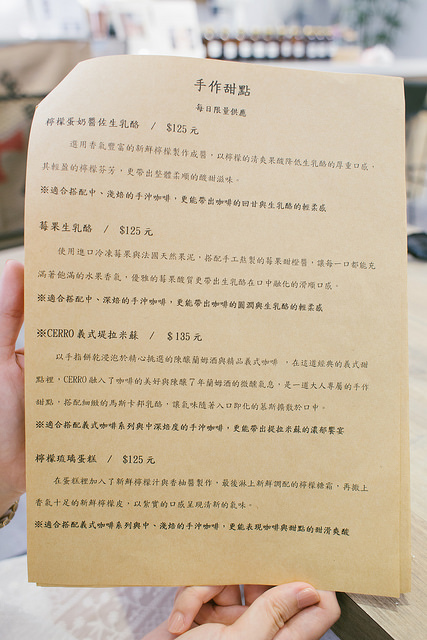 手作甜點
每日限量供應
檸檬蛋奶醬佐生乳酪 / $125元
選用香氣豐富的新鮮檸檬製作成醬，以檸檬的清爽果酸降低生乳酪的厚重口感，
具輕盈的檸檬芬芳，更帶出整體柔順的酸甜滋味。
※適合搭配中、淺焙的手沖咖啡，更能帶出咖啡的回甘與生乳酪的輕柔感
莓果生乳酪 / $125元
使用進口冷凍莓果與法國天然果泥，搭配手工熬製的莓果甜橙醬，讓每一口都能充
滿著飽滿的水果香氣，優雅的莓果酸質更帶出生乳酪在口中融化的滑順口感。
※適合搭配中、深焙的手沖咖啡，更能帶出咖啡的圓潤與生乳酪的輕柔感
※CERRO義式堤拉米蘇 / $135元
以手指餅乾浸泡於精心挑選的陳釀蘭姆酒與精品義式咖啡，在這道經典的義式甜
點裡，CERRO融入了咖啡的美好與陳釀7年蘭姆酒的微醺氣息，是一道大人專屬的手作
甜點，搭配細緻的馬斯卡邦乳酪，讓氣味隨著入口即化的慕斯擴散於口中。
※適合搭配義式咖啡系列與中深焙度的手沖咖啡，更能帶出提拉米蘇的濃郁饗宴
檸檬琉璃蛋糕 / $125元
在蛋糕裡加入了新鮮檸檬汁與香柚醬製作，最後淋上新鮮調配的檸檬糖霜，再撒上
香氣十足的新鮮檸檬皮，以紮實的口感呈現清新的氣味。
※適合搭配義式咖啡系列與中、淺焙的手沖咖啡，更能表現咖啡與甜點的甜滑爽酸